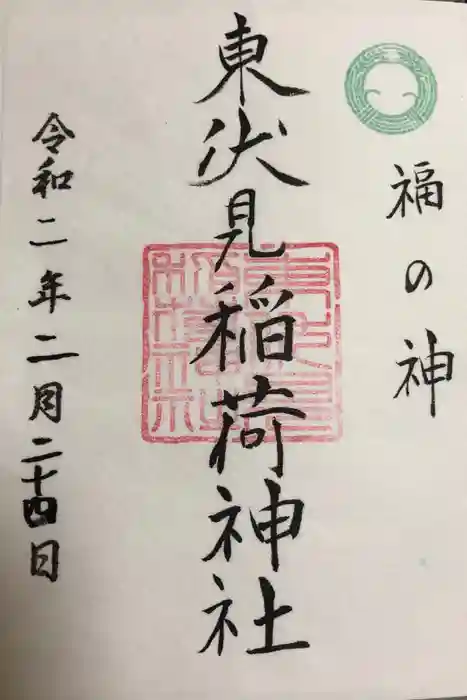 福の神
東伏見稲荷神社
令和二年二月二十四日